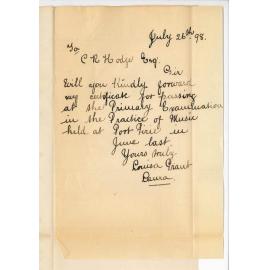 July 26th 98.
To
C R Hodge Esq.
Sir
Will you kindly forward
my certificate for passing
at the Primary Examination
in the Practice of Music
held at Port Pirie in
June last.
Yours truly
Louisa Grant
Laura.